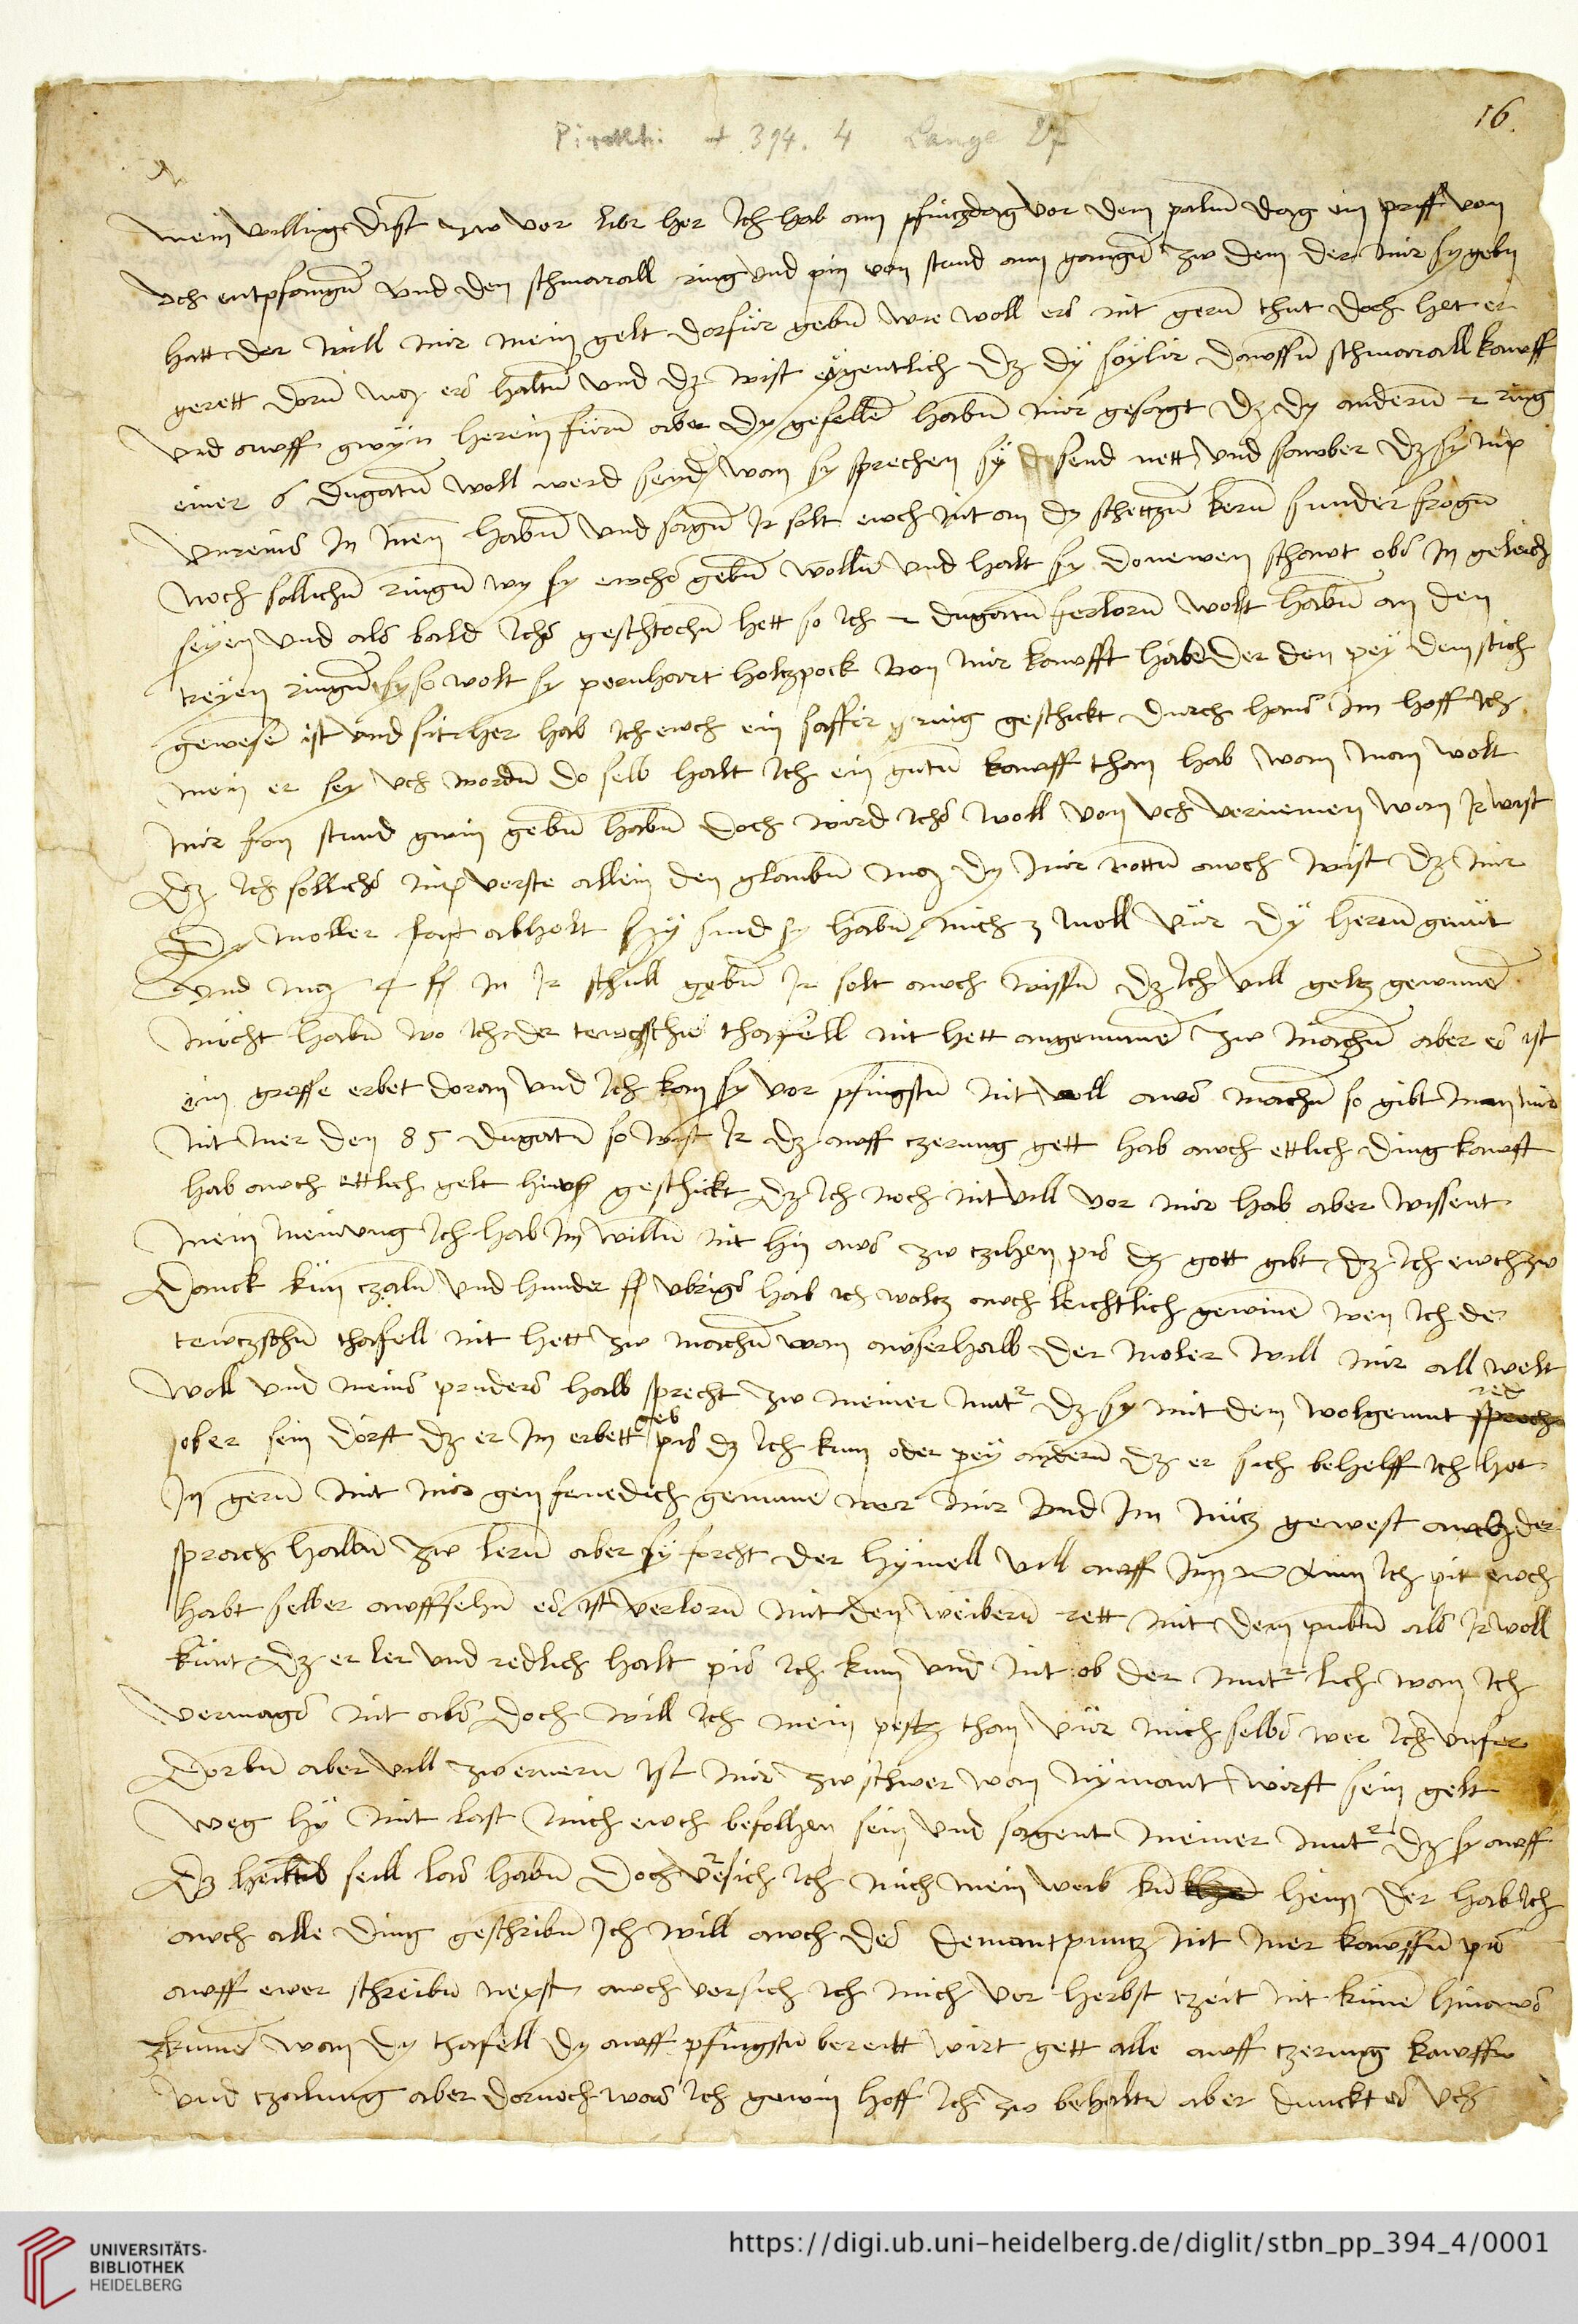 16.
Pirckh. 394. 4 Lange 27
Mein willing dinst zw vor liber her Ich hab am pfinczdag vor dem palmdag ein priff von
vch entpfangen vnd den schmarall ring vnd pin von stund an gangen zw dem der mir sy geben
hatt der will mir mein gelt dorfür geben wie woll ers nit gern thut doch het er
gerett dorum muz ers halten vnd dz wist eygentlich dz dy
vnd awff gwyn herein fürn aber dy gesellen haben mir gesagt dz dy anderen 2 ring
einer 6 dugaten woll werd send wan sy sprechen sy send nett vnd sawber dz sy nix
vnreins in Inen haben vnd sagen Ir solt ewch nit an dy scheczen kern sunder frogen
noch sollichen ringen wy sy ewchs geben wollen vnd halt sy donewen schawt obs In geleich
seyen vnd als bald Ichs gestochen hett so Ich 2 dugaten verloren wolt haben an den
treyen ringen so wolt sy pernhart holczpock von mir kawfft haben der den pey dem stich
gewesen ist vnd sitz her hab Ich ewch ein saffir ring geschickt durch hans Im hoff Ich
mein er sey vch worden do selb halt Ich ein guten kawff than hab wan man wolt
mir fon stund gwin geben haben doch wird Ichs woll von vch vernemen wan Ir wist
dz Ich sollichs nix verste allein den glawben muz dy mir rotten awch wist dz mir
dy moller fast abholt hy sind sy haben mich 3 moll vür dy herren genüt
vnd muz 4 fl In Ir schull geben Ir solt awch wissen dz Ich vill geltz gewunen
mücht haben wo Ich der tewczschen thafell nit hett angenumen zw machen aber es ist
ein grosse erbet doran vnd Ich kan sy vor pfingsten nit woll aws machen so gibt man mir
nit mer den 85 dugaten so wist Ir dz awff czerung gett hab awch ettlich ding kawft
hab awch ettlich gelt hinweg geschickt dz Ich noch nit vill vor mir hab aber wissent
mein meinung Ich hab Im willen nit hin aws zw czihen pis dz gott gibt dz Ich ewch zw
danck kün czaln vnd hunder fl vbrigs hab Ich woltz awch leichtlich gewinen wen Ich de
tewczschen thafell nit hett zw machen wan awserhalb der moler will mir all welt
woll vnd meins pruders halb sprecht zw meiner muter dz sy mit dem wolgemut red
ober sein dörft dz er Im erbett geb pis dz Ich kum oder pey anderen dz er sich behelff Ich het
In gern mit mir gen fenedich genumen wer mir vnd Im nücz gewest awch der
sproch halben zw lern aber sy forcht der hymell vill awff Inn Ich pit ewch
habt selber awffsehn es ist verloren mit den weiberen rett mit dem puben als Ir woll
künt dz er ler vnd redlich halt pis Ich kum vnd nit ob der muter lich wan Ich
vermags nit als doch will Ich mein pestz than vür mich selbs wer Ich vnfer
dorben aber vill zw erneren ist mir zw schwer wan nymant wirft sein gelt
weg hy mit last mich ewch befolhen sein vnd sagent meiner muter dz sy awff
dz heiltum feill las haben doch versich Ich mich mein weib kum heim der hab Ich
awch alle ding geschriben Ich will awch des demant puntz nit mer kawffen pis
awff ewer schreiben nexst awch versich Ich mich vor herbst czeit nit künen hinaws
kumen wan dy thafell dy awff pfingsten bereitt wirt gett alle awff czerung kawffen
vnd czalung aber dornoch was Ich gewin hoff Ich zw behalten aber dunckt es vch
UNIVERSITÄTS-
BIBLIOTHEK
HEIDELBERG
https://digi.ub.uni-heidelberg.de/diglit/stbn_pp_394_4/0001